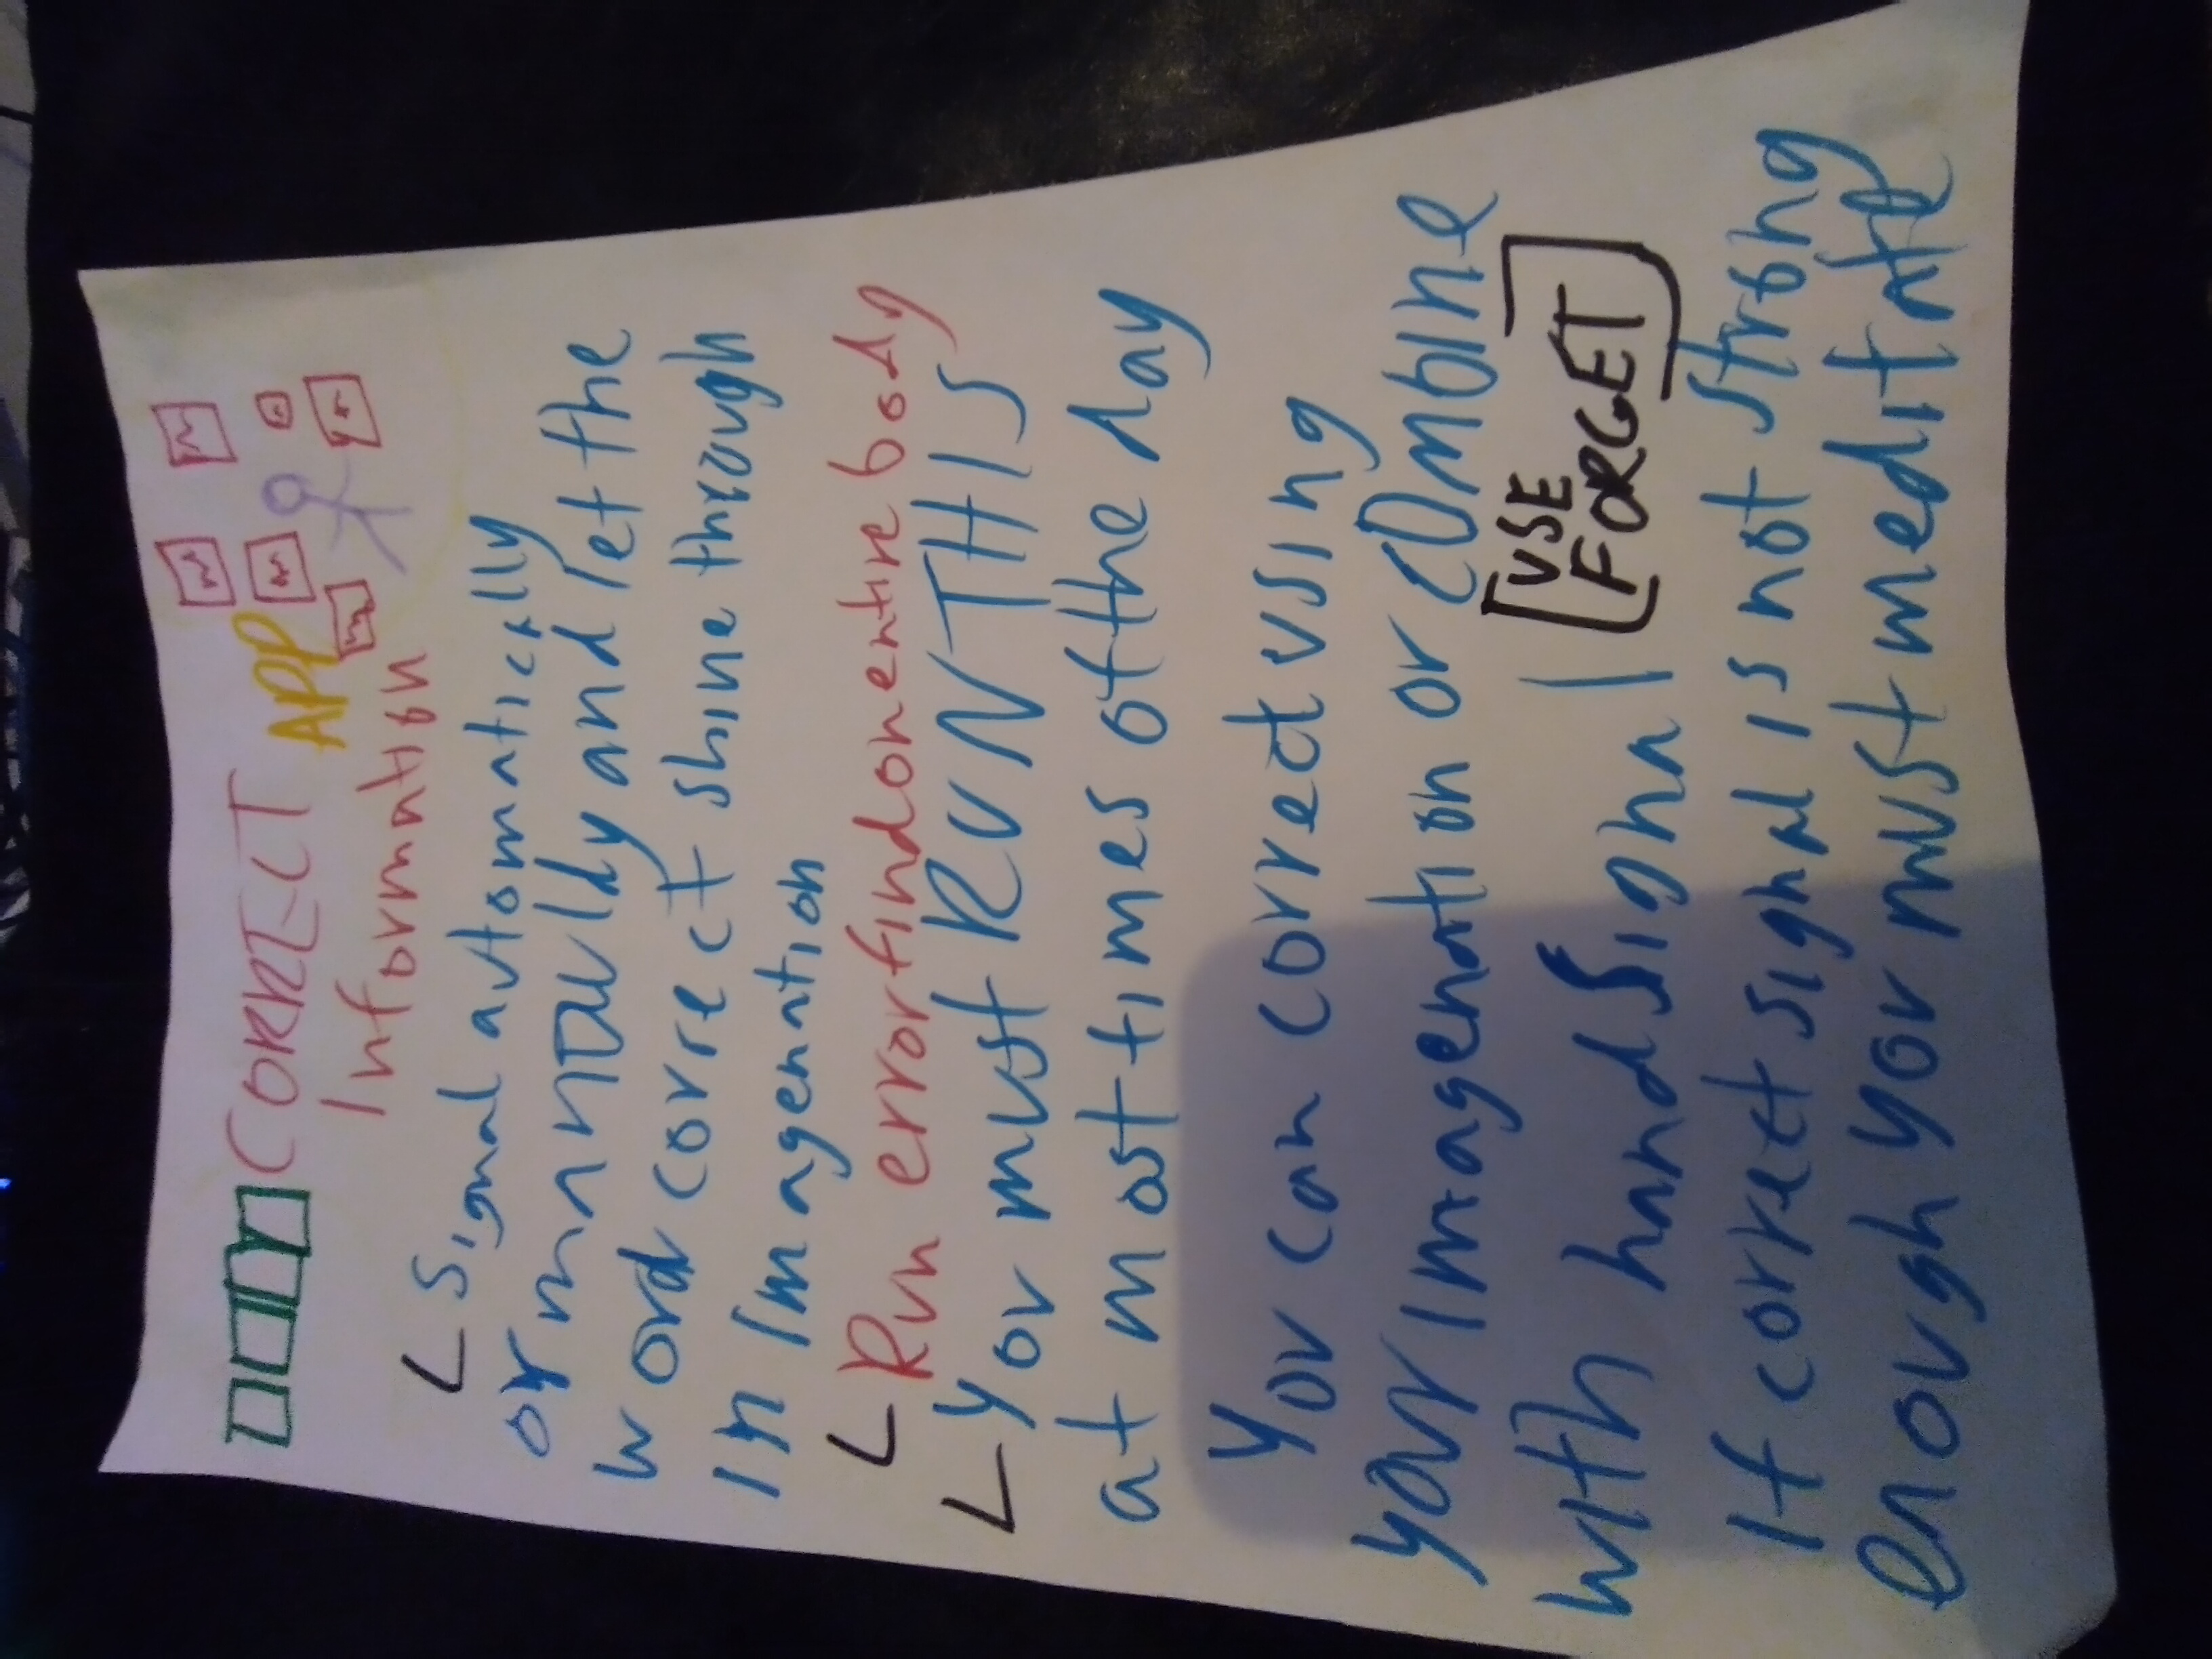 CORRECT APP
Information
Signal automatically
or manually and let the
word correct shine through
in Imagenation
Run error find on entire body
you must RUN THIS
at most times of the day
you can correct using
your Imagenation or combine
with hand sign
USE
FORGET
If correct signal is not strong
enough you must meditate